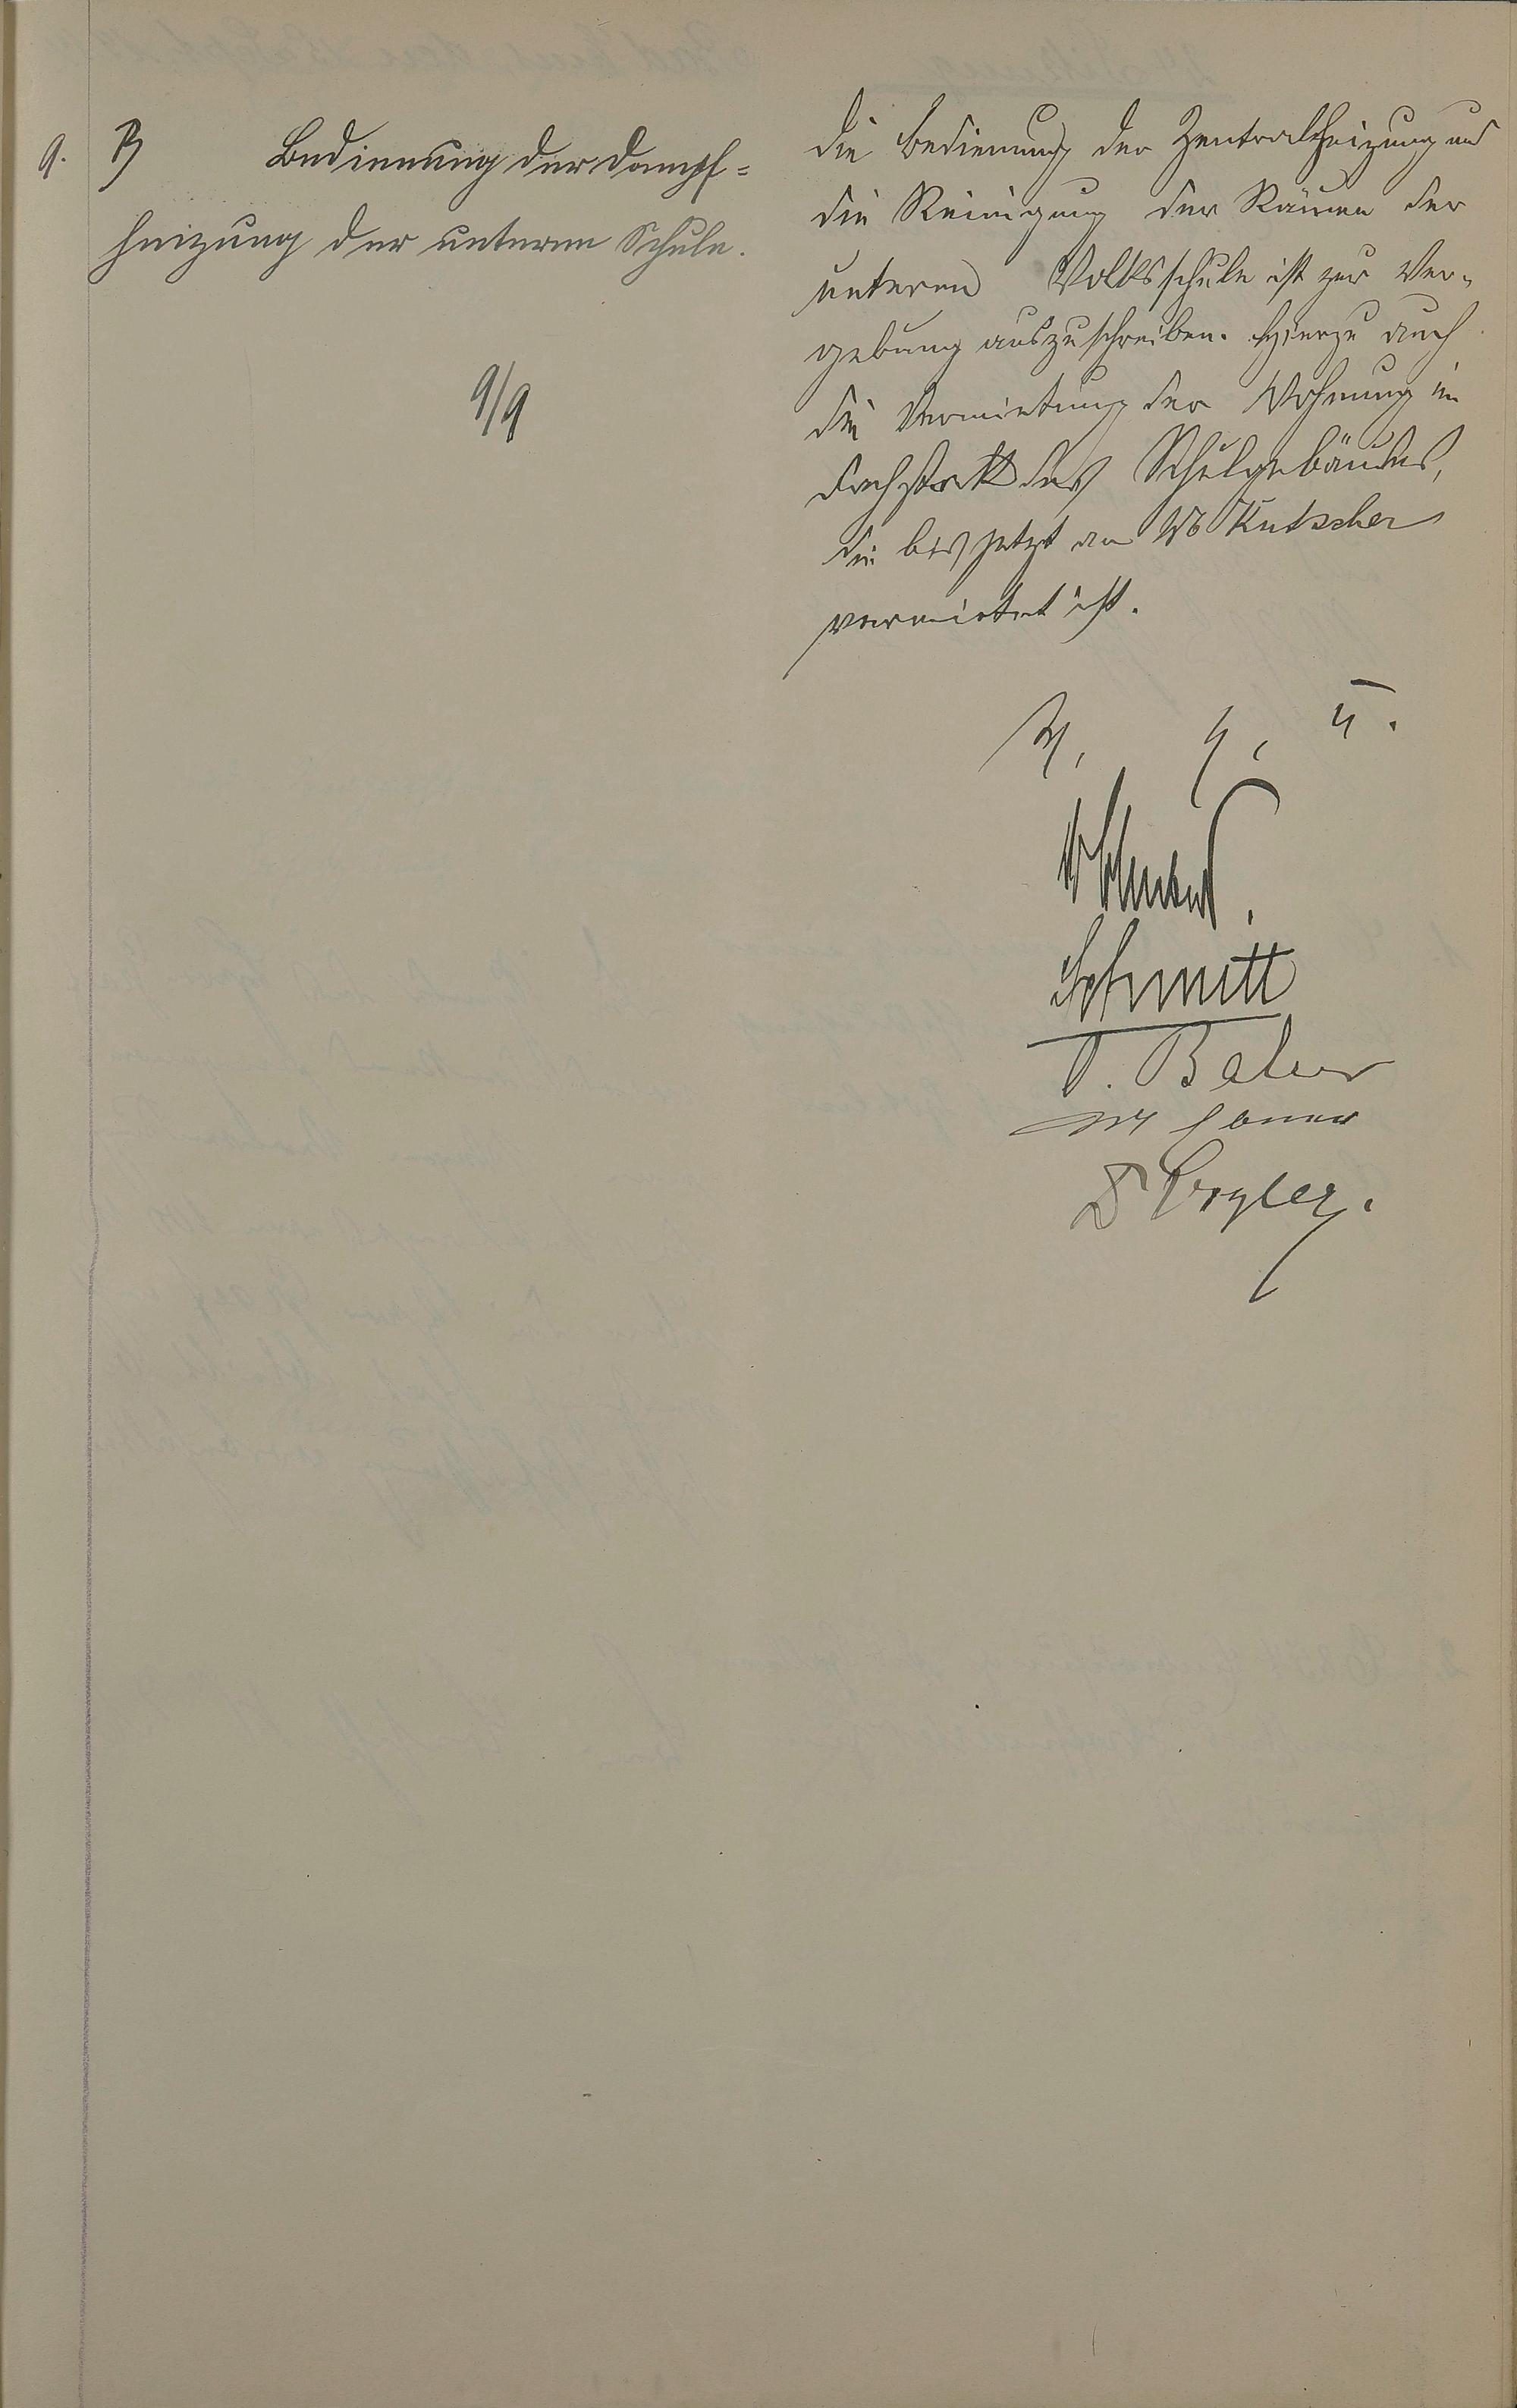 9. B Bedienung der Dampf-
heizung der unteren Schule.
9/9
Die Bedienung der Zentralheizung und
die Reinigung der Räume der
unteren Volksschule ist zur Ver-
gebung auszuschreiben. Hierzu auch
die Vermietung der Wohnung im
Dachstock des Schulgebäudes,
die bis jetzt an Wb Kutscher
vermietet ist.
V. g. u.
Schmitt